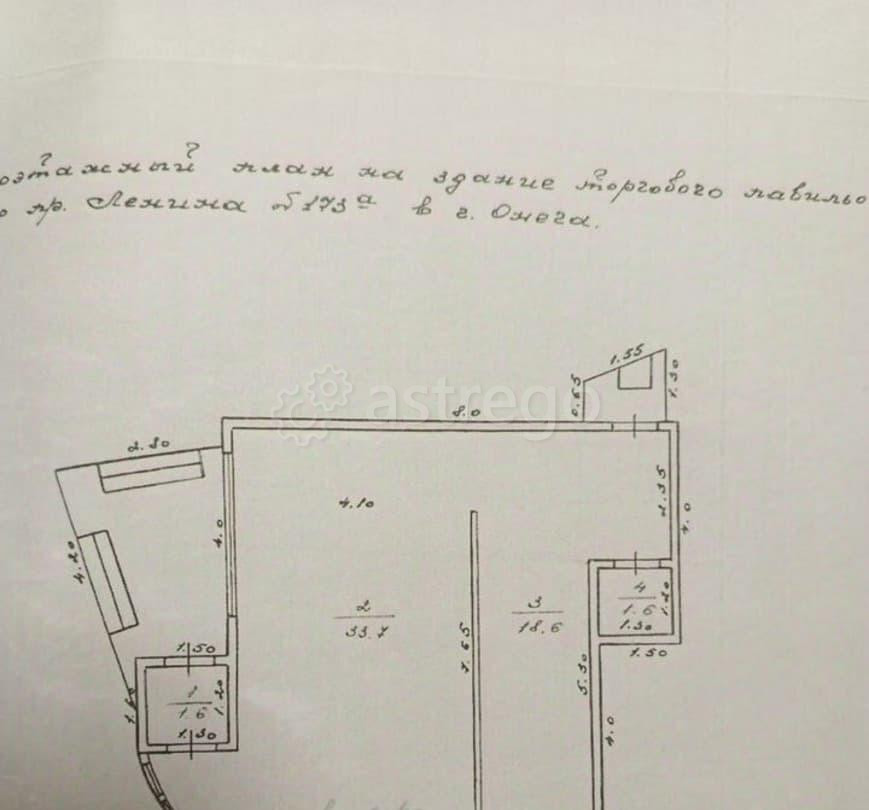 оэтажный план на здание торгового павильо
о пр. Ленина №173а в г. Онега.
1.55
0.65
1.30
astrego
8.0
2.30
4.10
2.35
4.0
4.0
4.20
2
33.7
3
18.6
4
1.6
1.20
1.30
1.50
7.65
5.30
1.50
1
1.6
1.20
1.60
1.30
4.0